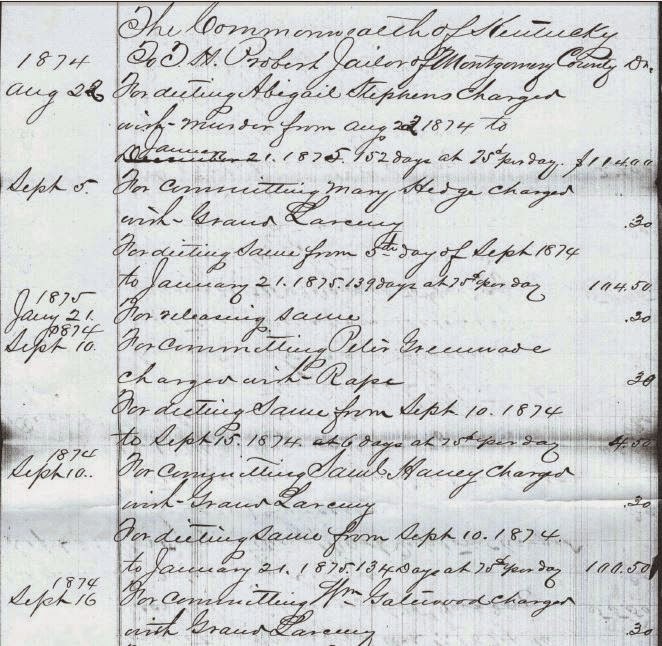 The Commonwealth of Kentucky
1874 To T. H. Probert Jailor of Montgomery County Dr.
Aug 22 For dieting Abigail Stephens Charged
with Murder from Aug 22 1874 to
January
December 21. 1875. 152 days at 75¢ per day. $114.00
Sept 5. For committing Mary Hedge charged
with Grand Larceny .30
For dieting Same from 5th day of Sept 1874
to January 21. 1875. 139 days at 75¢ per day 104.50
1875
Jany 21. For releasing same .30
1874
Sept 10. For committing Peter Greenwade
charged with Rape 30
For dieting Same from Sept. 10. 1874
to Sept 15. 1874 at 6 days at 75¢ per day 4.50
1874
Sept 10.. For committing Saml Haney charged
with Grand Larceny .30
For dieting same from Sept 10. 1874
to January 21. 1875. 134 Days at 75¢ per day 100.50
1874
Sept 16 For committing Wm Gatewood charged
with Grand Larceny .30